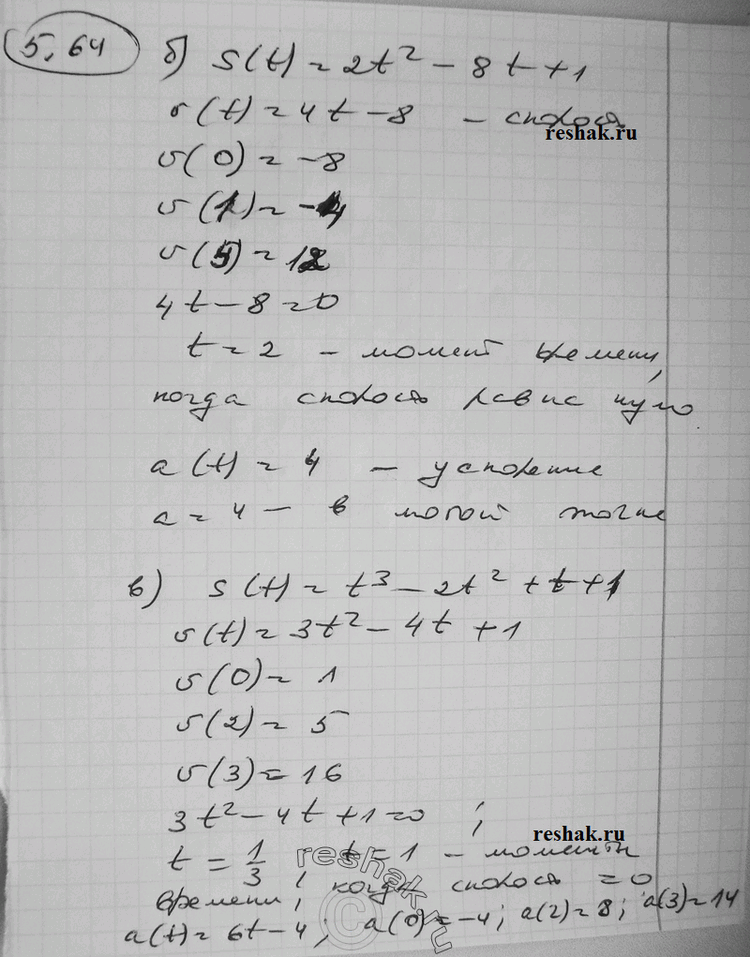 5.64
б) S(t) = 2t² - 8t + 1
v(t) = 4t - 8 - скорость
reshak.ru
v(0) = -8
v(1) = -4
v(5) = 12
4t - 8 = 0
t = 2 - момент времени,
когда скорость равна нулю
a(t) = 4 - ускорение
a = 4 - в любой точке
в) S(t) = t³ - 2t² + t + 1
v(t) = 3t² - 4t + 1
v(0) = 1
v(2) = 5
v(3) = 16
3t² - 4t + 1 = 0 ;
reshak.ru
t = 1/3 , t = 1 - моменты
времени, когда скорость = 0
a(t) = 6t - 4; a(0) = -4; a(2) = 8; a(3) = 14
reshak.ru